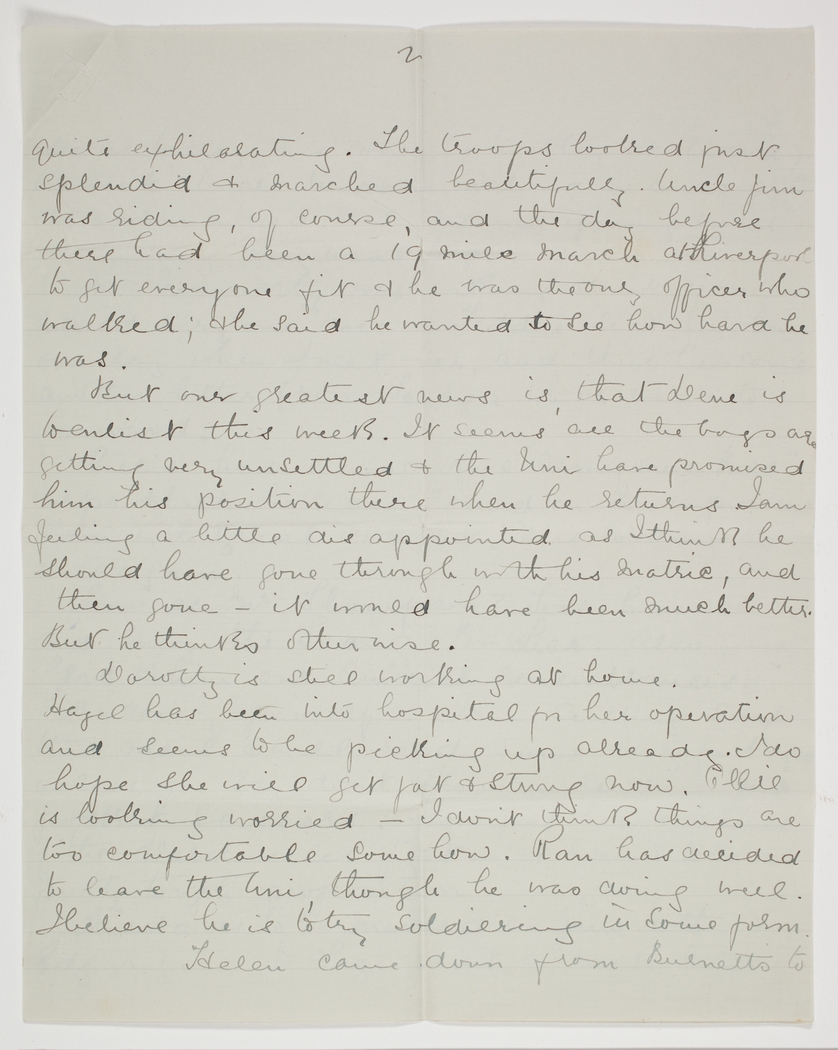 2
quite exhilarating. The troops looked just
splendid & marched beautifully. Uncle Jim
was riding, of course, and the day before
there had been a 19 mile march at Liverpool
to get everyone fit & he was the only officer who
walked; & he said he wanted to see how hard he
was.
But our greatest news is, that Dene is
to enlist this week. It seems all the boys are
getting very unsettled & the Uni have promised
him his position there when he returns I am
feeling a little disappointed as I think he
should have gone through with his Matric, and
then gone - it would have been much better.
But he thinks otherwise.
Dorothy is still working at home.
Hazel has been into hospital for her operation
and seems to be picking up already. I do
hope she will get fat & strong now. Ellie
is looking worried - I don't think things are
too comfortable somehow. Ran has decided
to leave the Uni though he was doing well.
I believe he is to try soldiering in some form.
Helen came down from Burnetts to